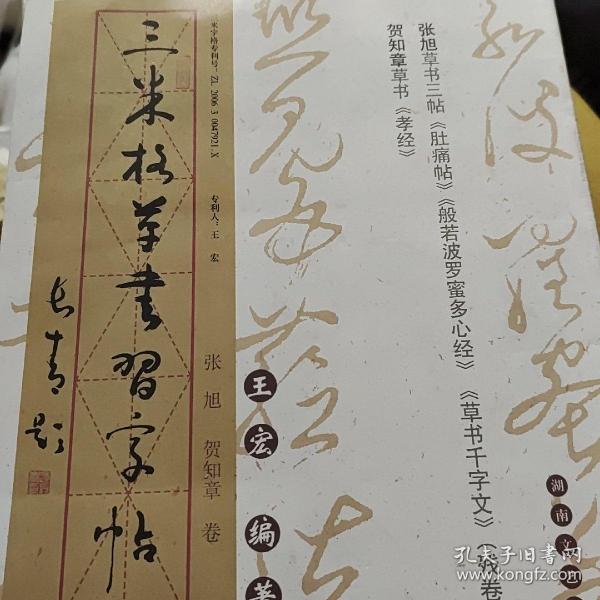 张旭草书三帖《肚痛帖》《般若波罗蜜多心经》《草书千字文》（残卷
贺知章草书《孝经》
米字格专利号：ZL 2006 3 0047921.X
专利人：王 宏
三米格草书习字帖
长青题
张旭 贺知章 卷
王宏 编著
湖南文
孔夫子旧书网
www.kongfz.com